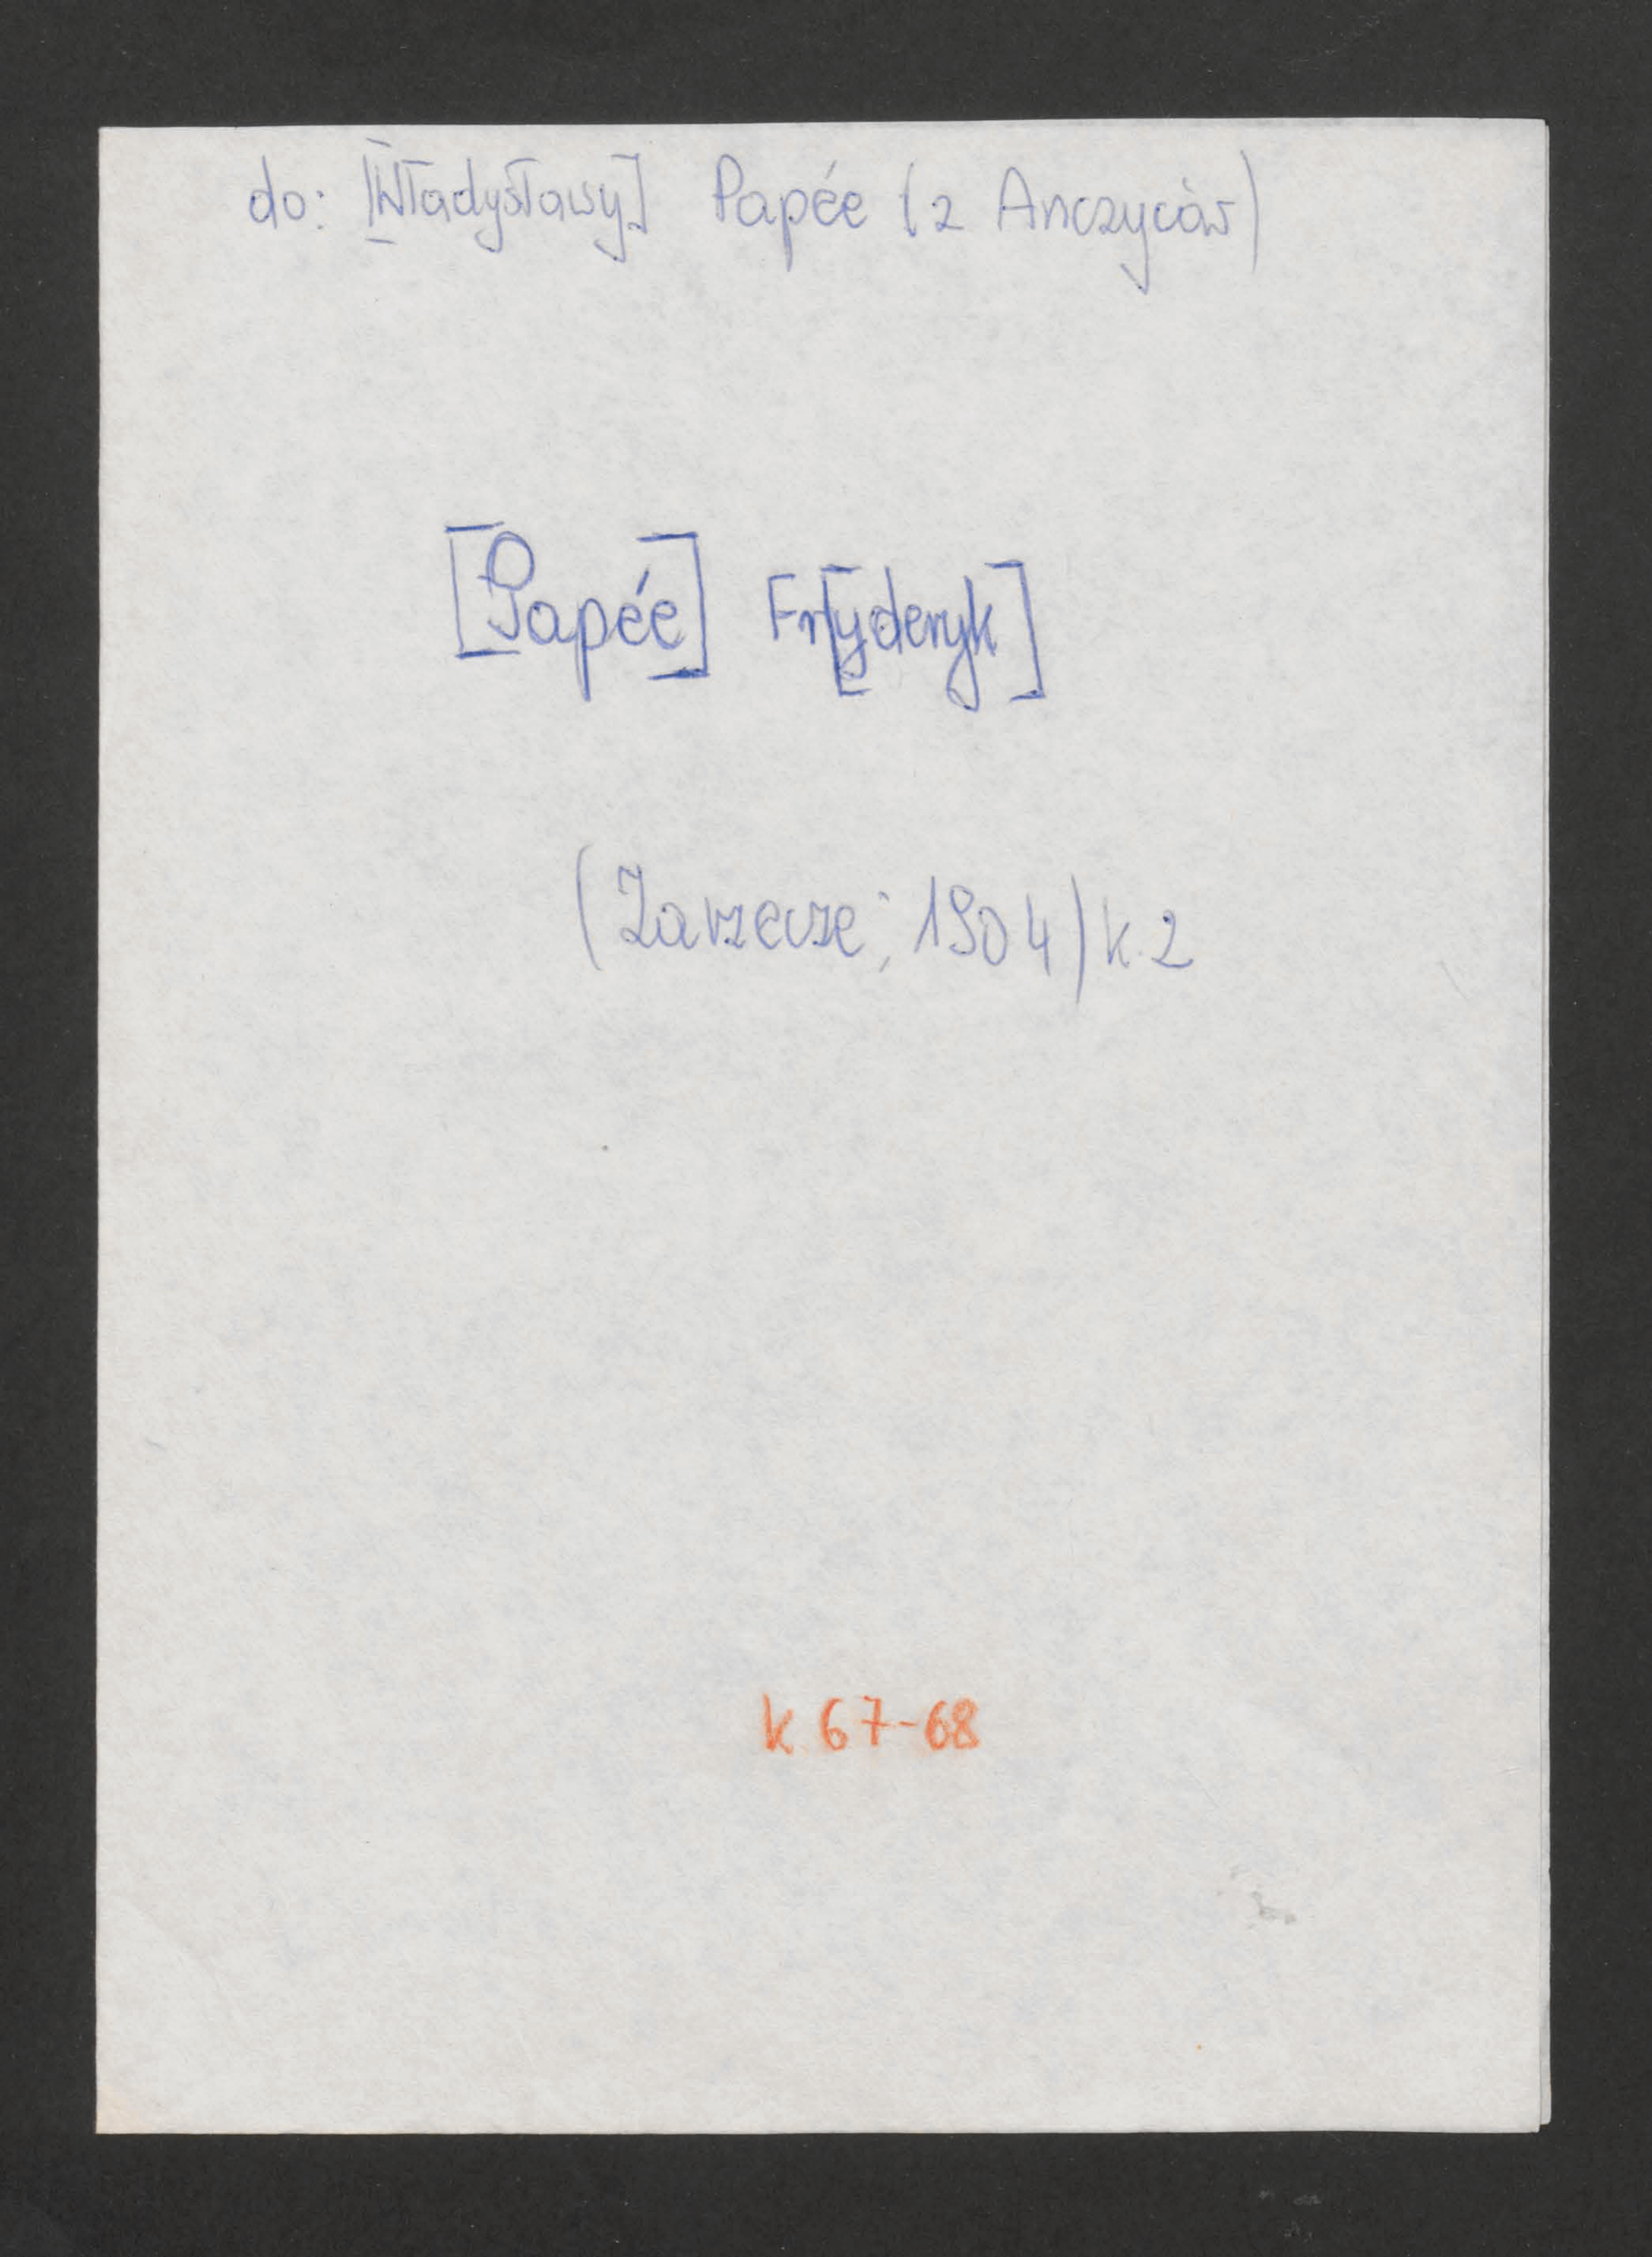 do: [Władysławy] Papée (z Anczyców)
[Papée] Fr[yderyk]
(Zarzecze; 1904) k. 2
k. 67-68